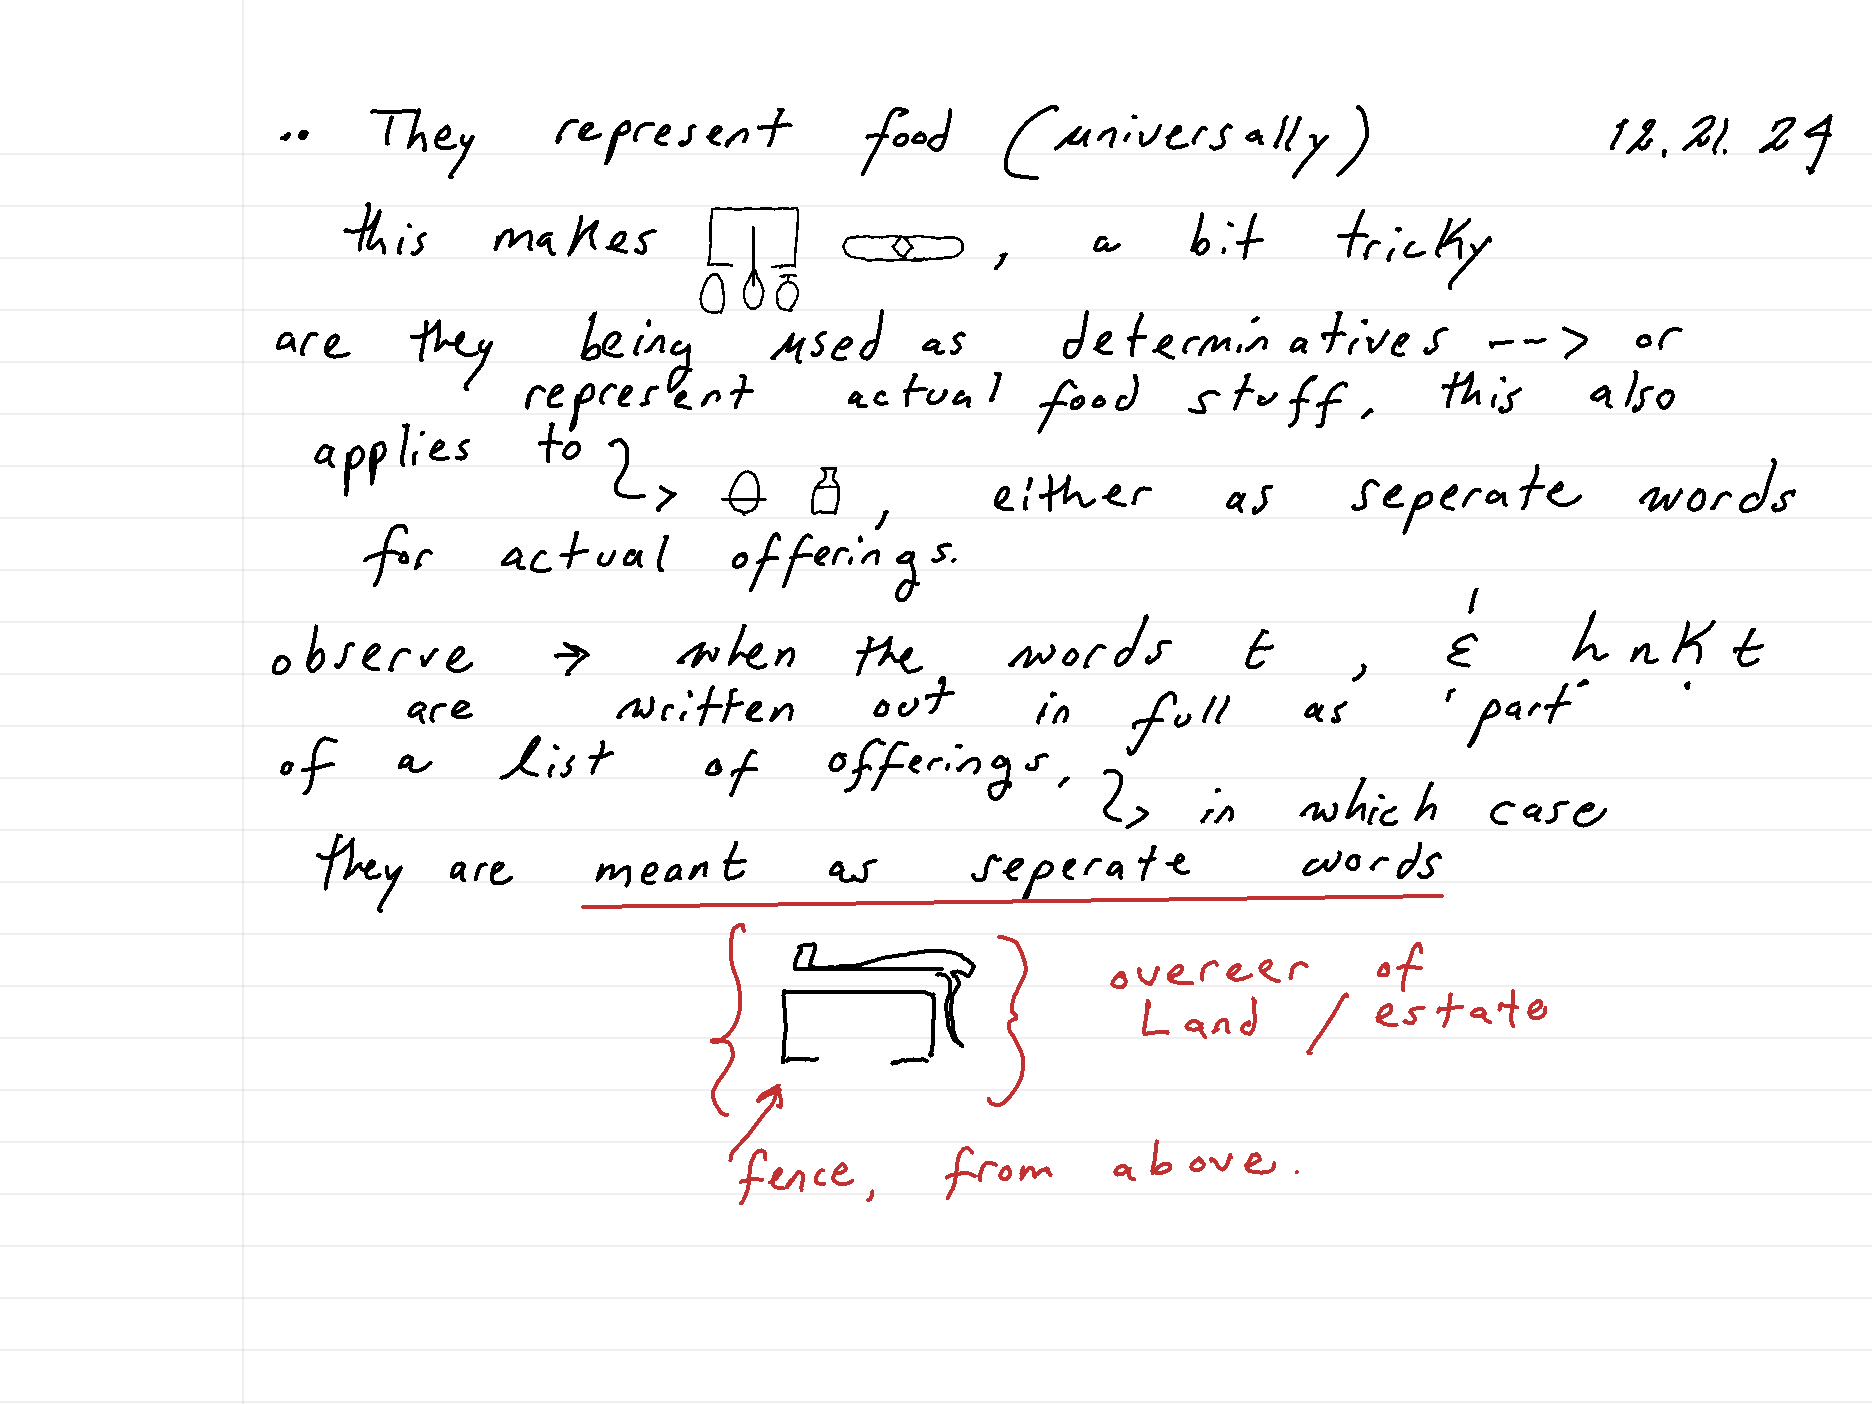 •• They represent food (universally) 12.21.24
this makes , a bit tricky
are they being used as determinatives --> or
represent actual food stuff, this also
applies to
, either as seperate words
for actual offerings.
observe → when the words t , & hnkt
are written out in full as 'part'
of a list of offerings,
in which case
they are meant as seperate words
overeer of
Land / estate
fence, from above.